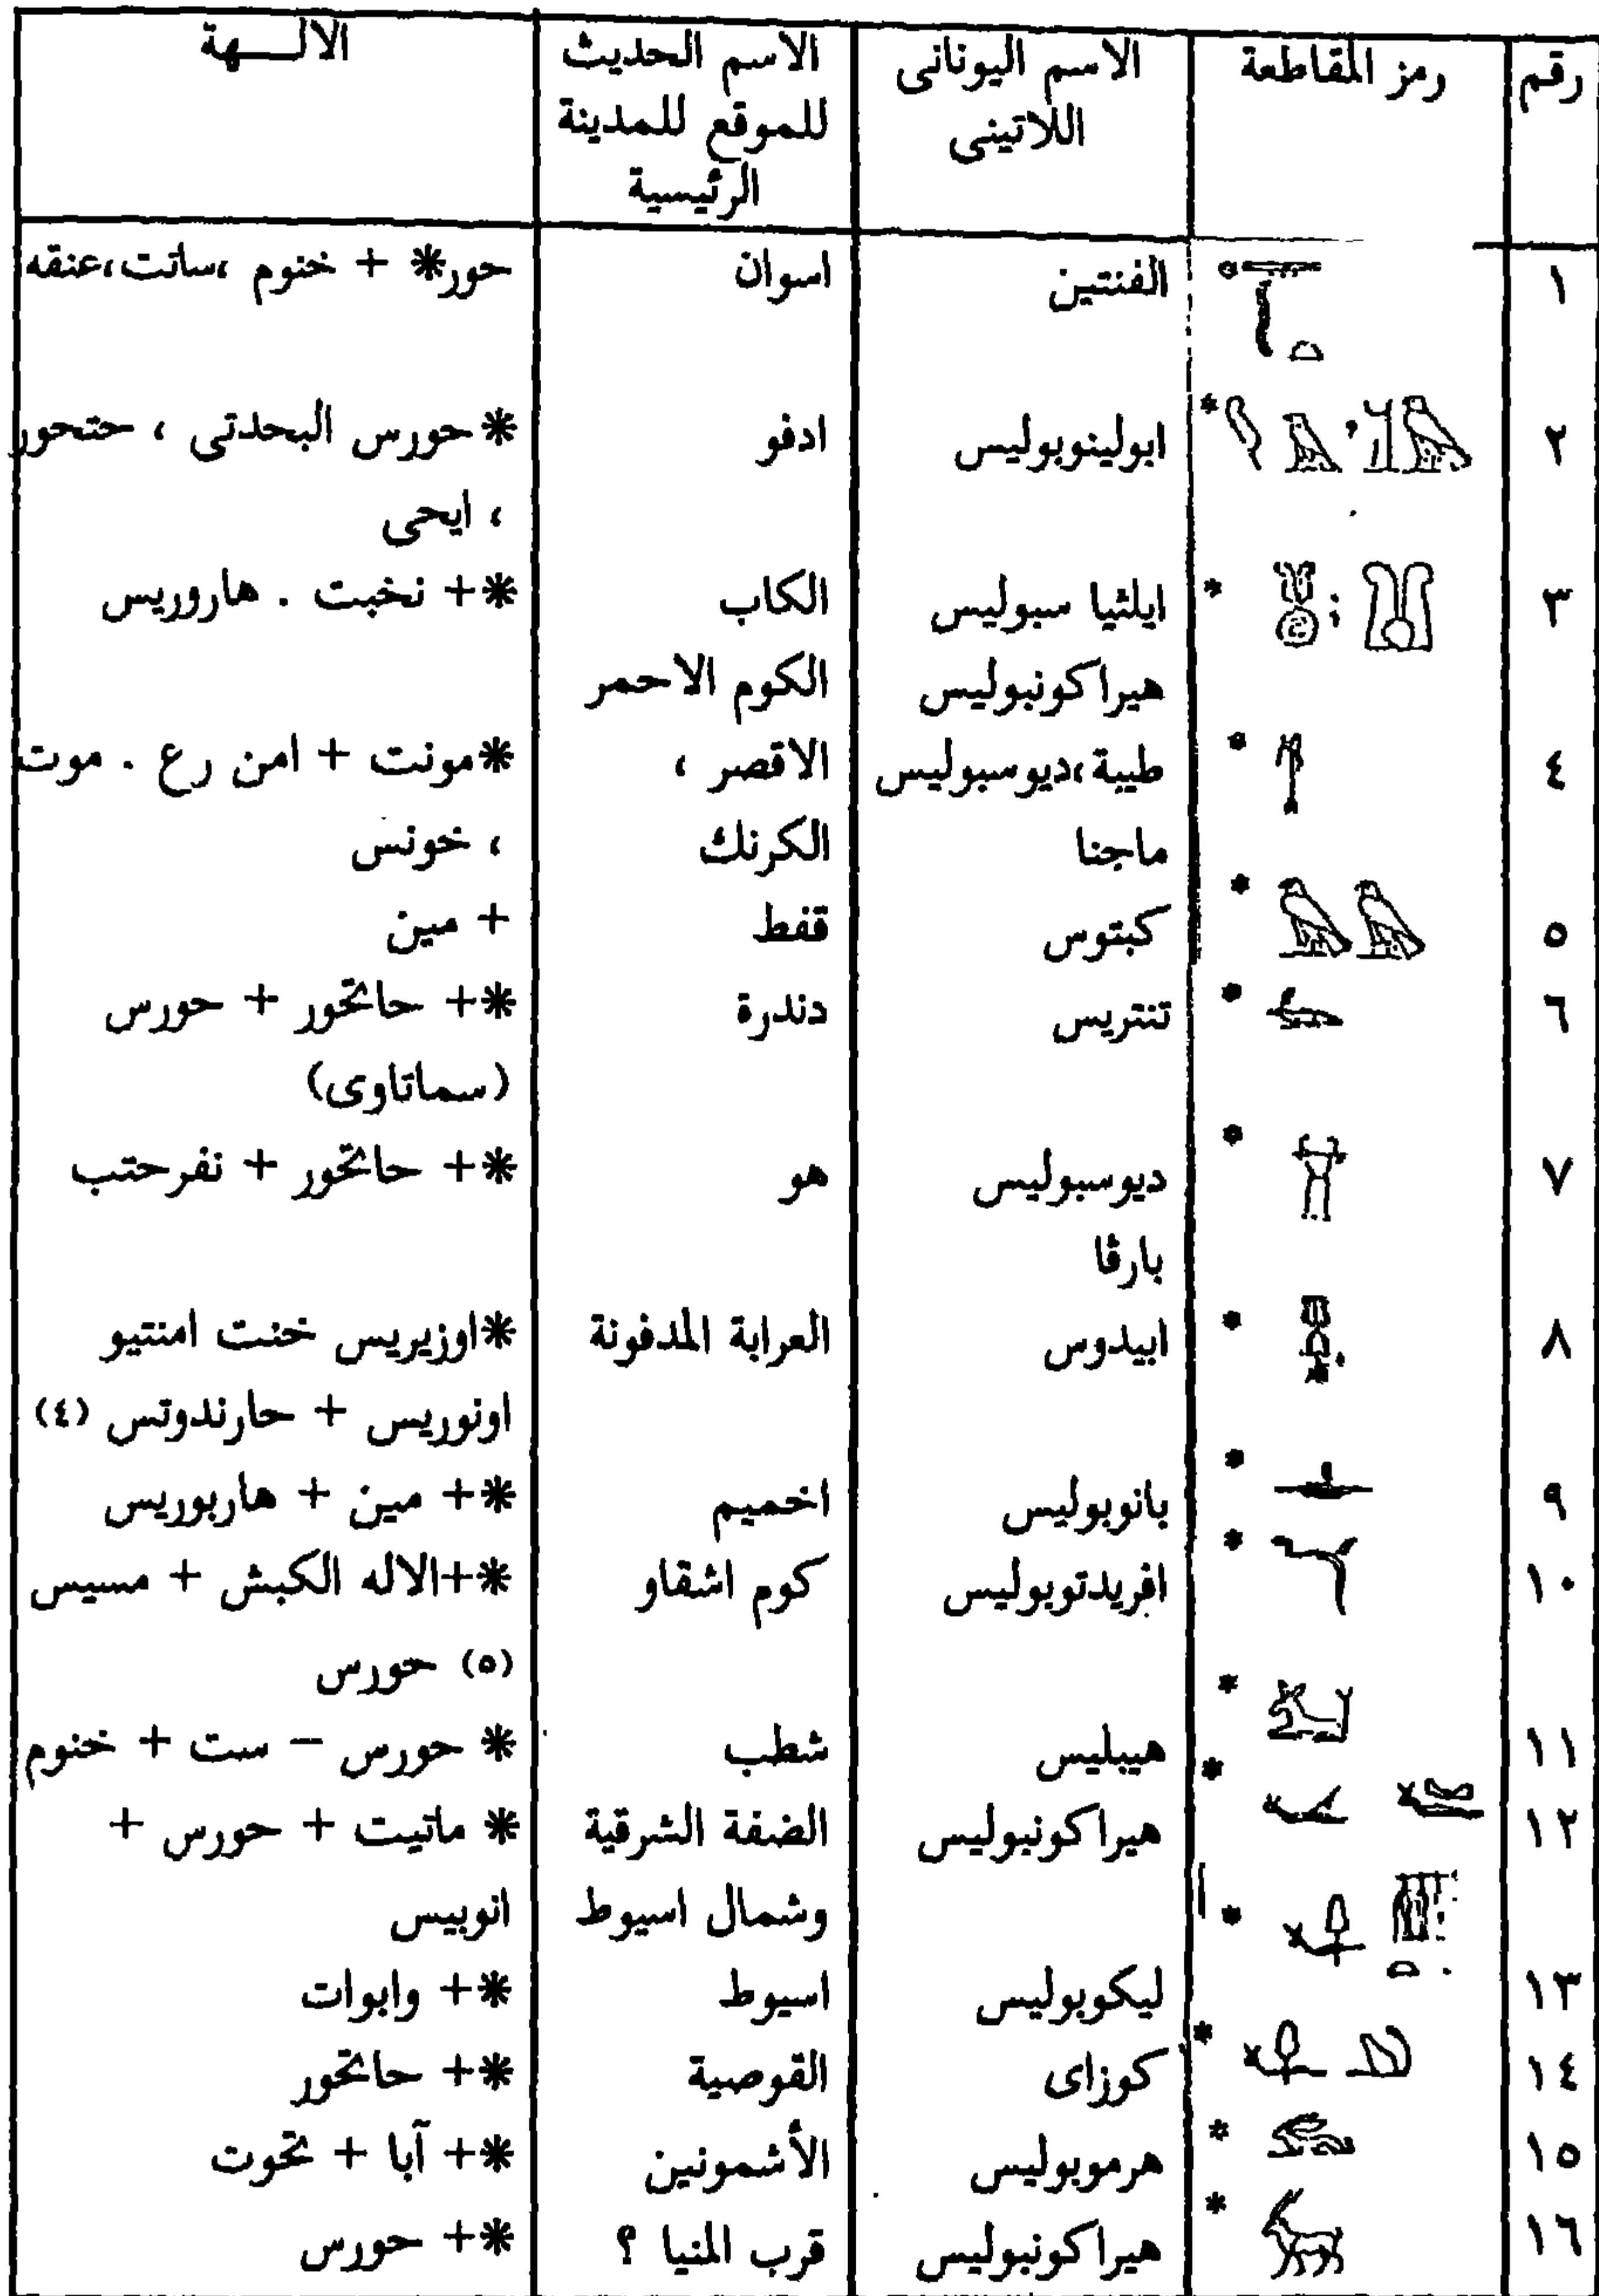 رقم | رمز المقاطعة | الاسم اليونانى | الاسم الحديث | الالـــهة
اللاتينى | للموقع للمدينة
الرئيسية
١ | الفنتين | اسوان | حور* + خنوم ،ساتت،عنقه
٢ | * | ابولينوبوليس | ادفو | * حورس البحدتى ، حتحور
، ايحى
٣ | * | ايلثيا سبوليس | الكاب | *+ نخبت . هاروريس
هيراكونبوليس | الكوم الاحمر
٤ | * | طيبة،ديوسبوليس | الاقصر ، | *مونت + امن رع . موت
ماجنا | الكرنك | ، خونس
٥ | * | كبتوس | قفط | + مين
٦ | * | تنتريس | دندرة | *+ حاتحور + حورس
(سماتاوى)
٧ | * | ديوسبوليس | هو | *+ حاتحور + نفرحتب
بارڤا
٨ | * | ابيدوس | العرابة المدفونة | *اوزيريس خنت امنتيو
اونوريس + حارندوتس (٤)
٩ | * | بانوبوليس | اخميم | *+ مين + هاربوريس
١٠ | * | افريدتوبوليس | كوم اشقاو | *+الاله الكبش + مسيس
(٥) حورس
١١ | * | هيبليس | شطب | * حورس – ست + خنوم
١٢ | * | هيراكونبوليس | الضفة الشرقية | * ماتيت + حورس +
وشمال اسيوط | انوبيس
١٣ | * | ليكوبوليس | اسيوط | *+ وابوات
١٤ | * | كوزاى | القوصية | *+ حاتحور
١٥ | * | هرموبوليس | الأشمونين | *+ آبا + تحوت
١٦ | * | هيراكونبوليس | قرب المنيا ؟ | *+ حورس